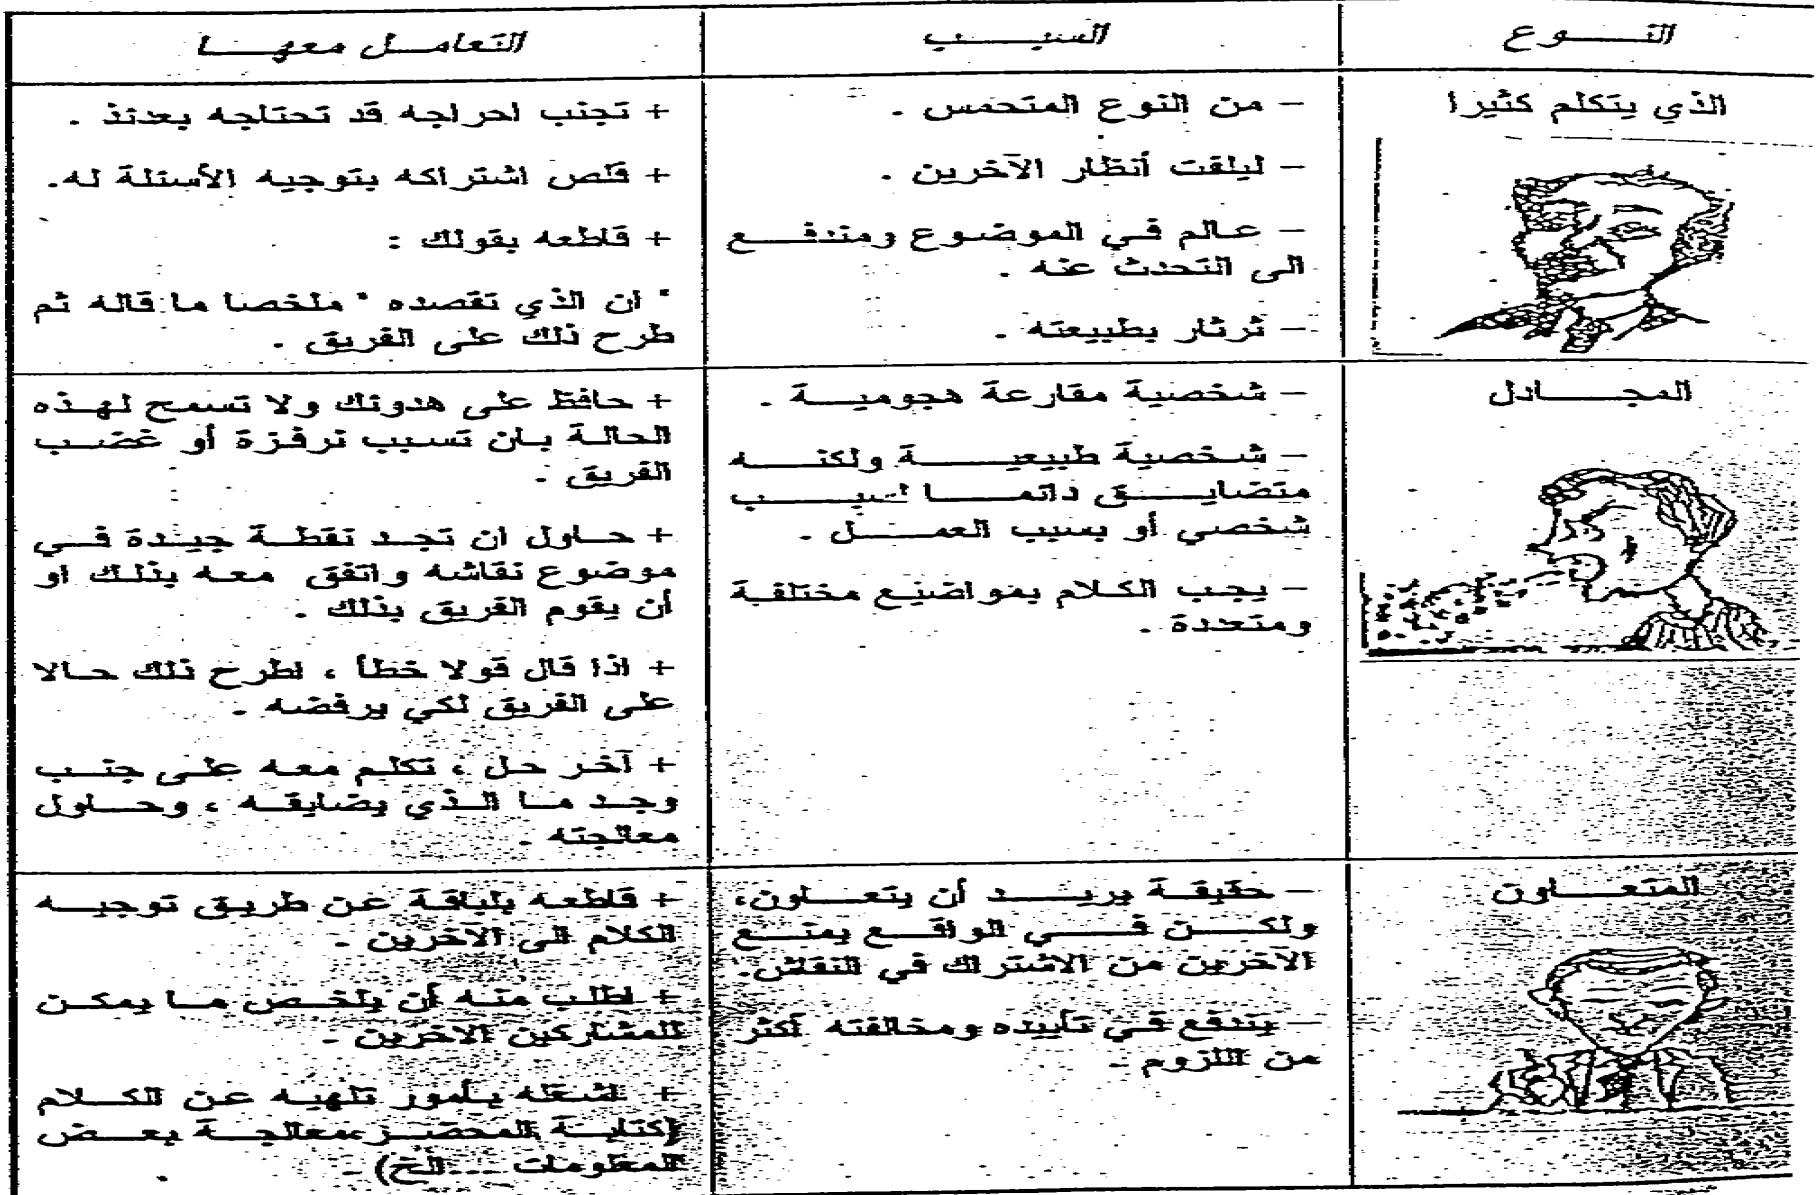 النــوع
السبــب
التعامـل معهـا
الذي يتكلم كثيرا
– من النوع المتحمس .
– ليلفت أنظار الآخرين .
– عالم في الموضوع ومندفــع
الى التحدث عنه .
– ثرثار بطبيعته .
+ تجنب احراجه قد تحتاجه بعدئذ .
+ قلص اشتراكه بتوجيه الأسئلة له.
+ قاطعه بقولك :
" ان الذي تقصده " ملخصا ما قاله ثم
طرح ذلك على الفريق .
المجــادل
– شخصية مقارعة هجوميــة .
– شخصية طبيعيــة ولكنــه
متضايــق دائمــا لسبــب
شخصي أو بسبب العمــل .
– يجب الكلام بمواضيع مختلفة
ومتعددة .
+ حافظ على هدوئك ولا تسمح لهذه
الحالة بان تسبب نرفزة أو غضب
الفريق .
+ حاول ان تجد نقطة جيدة في
موضوع نقاشه واتفق معه بذلك او
أن يقوم الفريق بذلك .
+ اذا قال قولا خطأ ، اطرح ذلك حالا
على الفريق لكي يرفضه .
+ آخر حل ، تكلم معه على جنب
وجد ما الذي يضايقه ، وحاول
معالجته .
المتعــاون
– حقيقة يريــد أن يتعــاون،
ولكــن فــي الواقــع يمنــع
الآخرين من الاشتراك في النقاش.
– يندفع في تأييده ومخالفته أكثر
من اللزوم .
+ قاطعه بلباقة عن طريق توجيه
الكلام الى الآخرين .
+ اطلب منه أن يلخص ما يمكن
للمشاركين الآخرين .
+ اشغله بأمور تلهيه عن الكلام
(كتابة المحضر ،معالجة بعض
المعلومات ...الخ) .